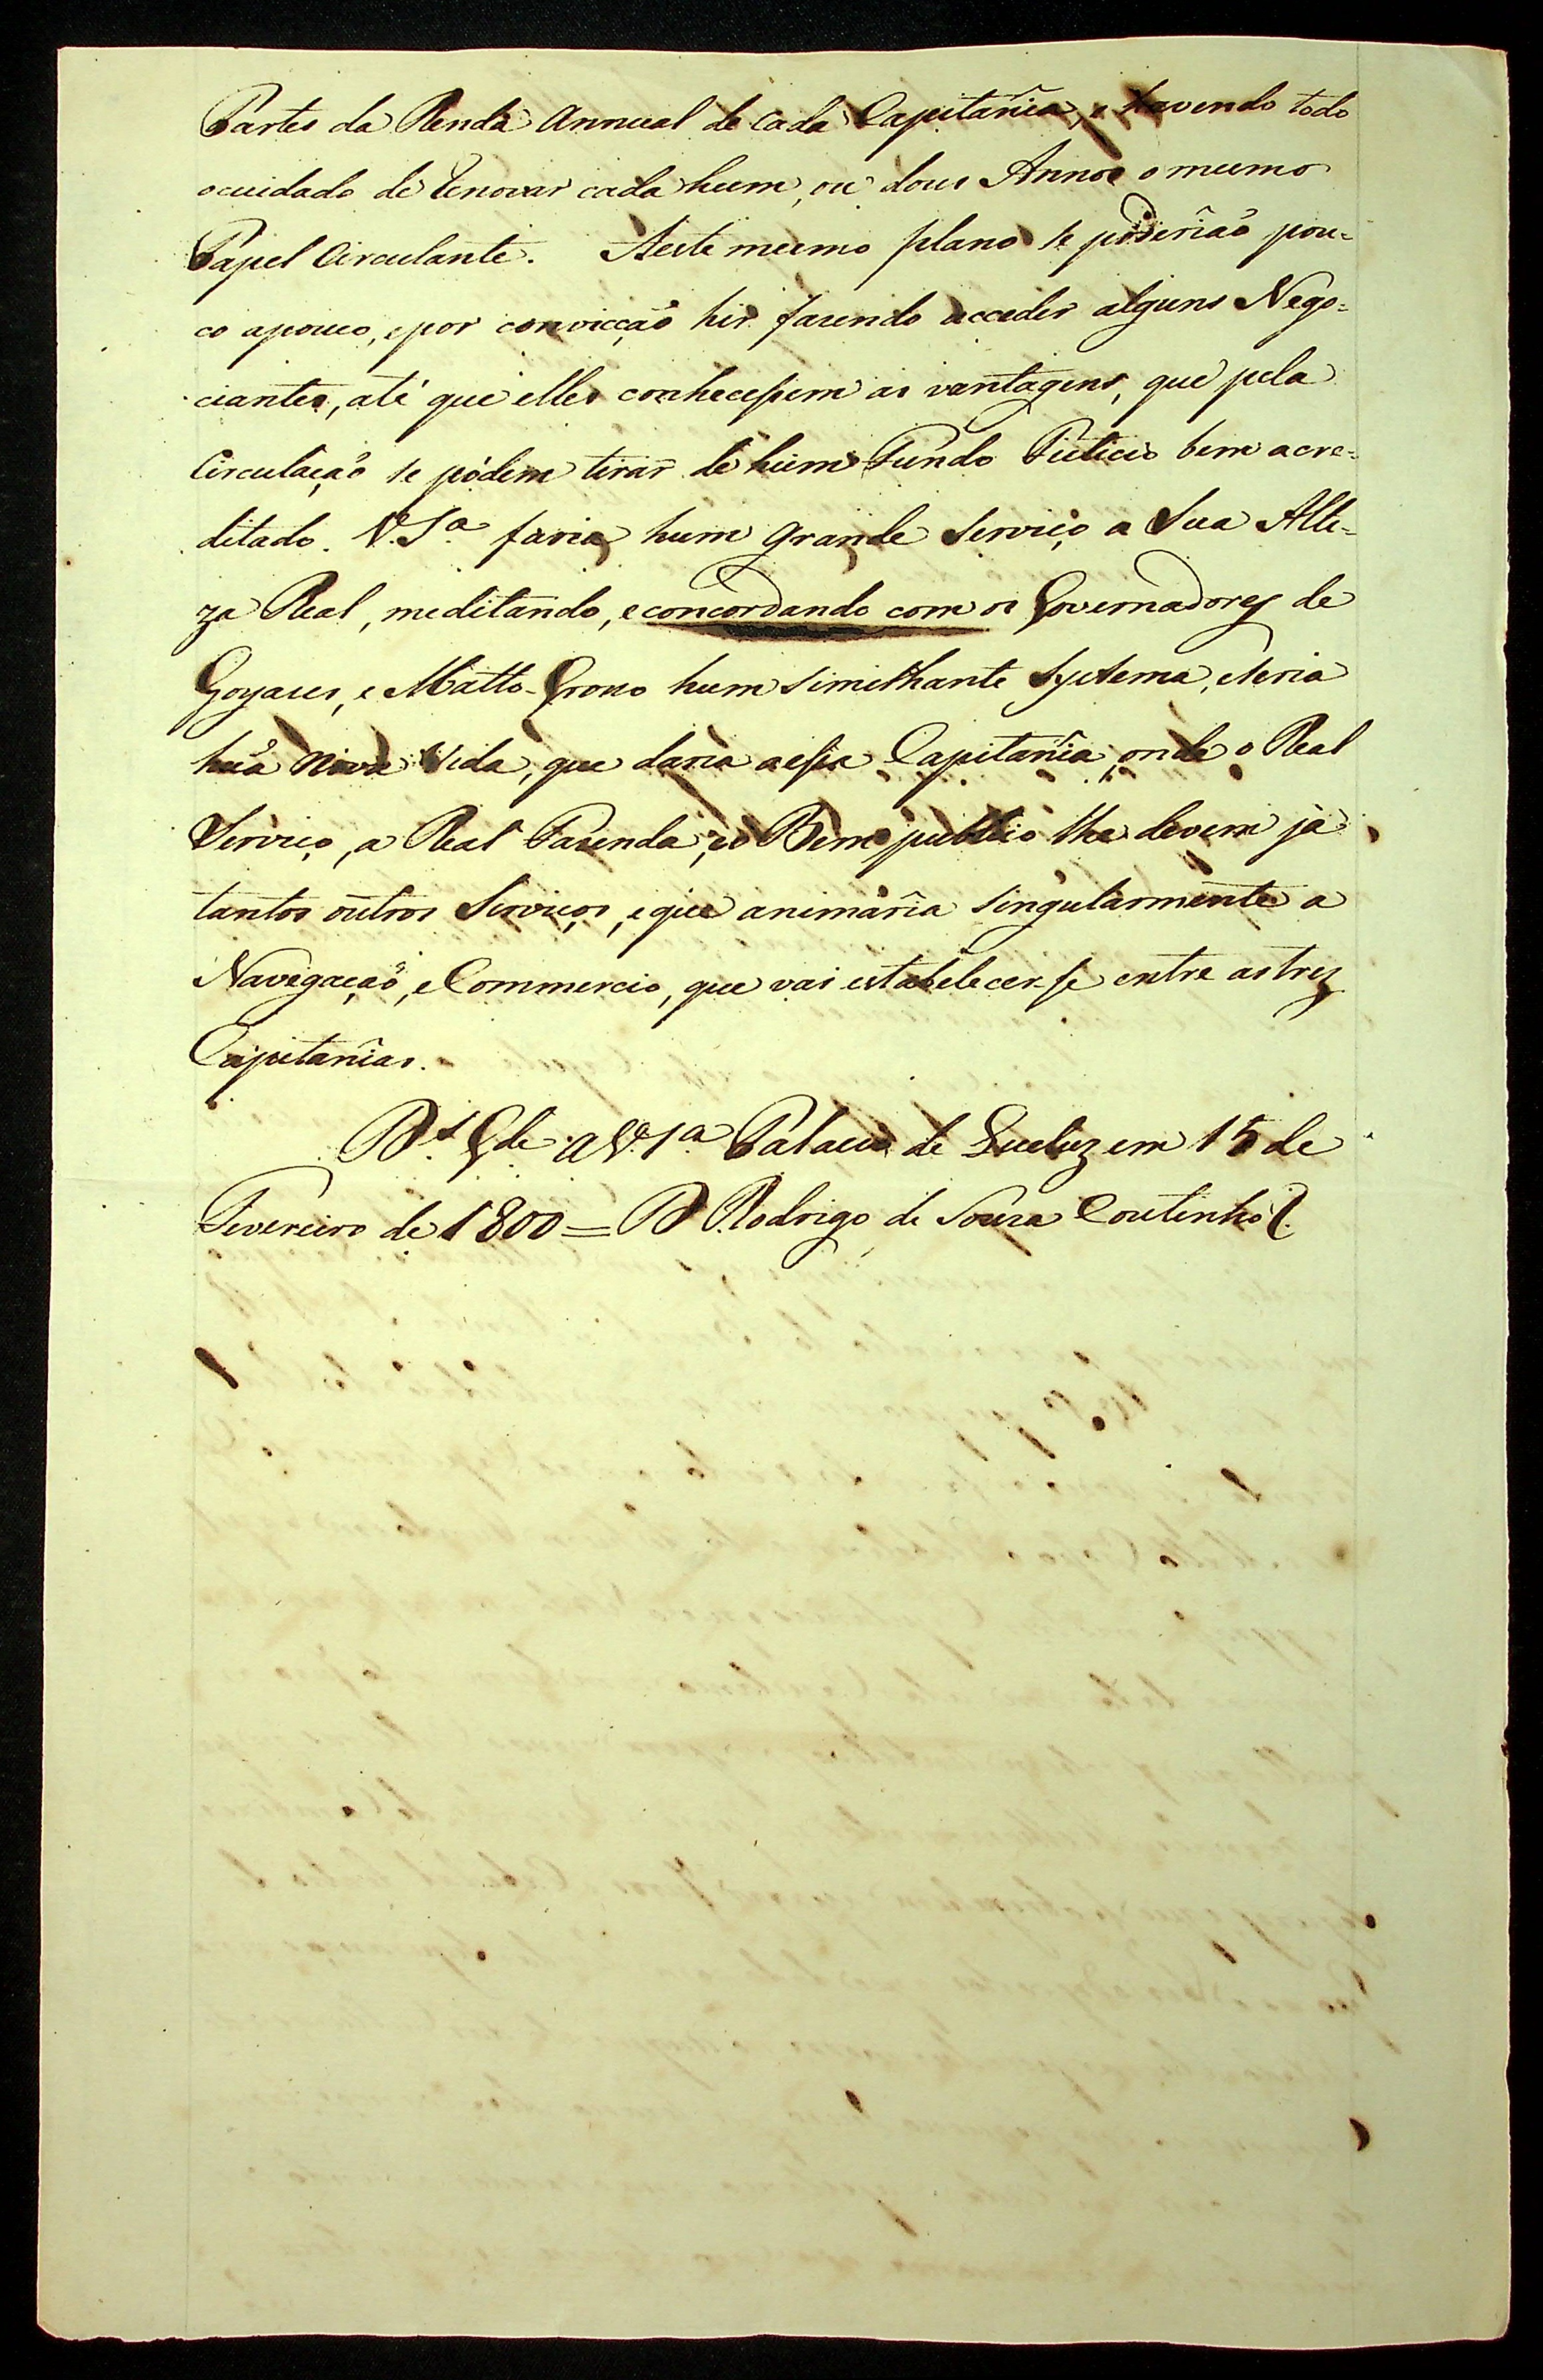 Partes da Renda Annual de cada Capitania, e havendo todo
o cuidado de renovar cada hum, ou dous Annos o mesmo
Papel Circulante. A este mesmo plano se poderião pou=
co a pouco, e por convicção hir fazendo acceder alguns Nego=
ciantes, até que elles conhecessem as vantagens, que pela
Circulação se pódem tirar de hum Fundo Ficticio bem acre=
ditado. V. S.ª faria hum grande Serviço a Sua Alte=
za Real, meditando, e concordando com os Governadores de
Goyases, e Matto-Grosso hum similhante Systema, e seria
huã Nova Vida, que daria a essa Capitania, onde o Real
Serviço, a Real Fazenda, e o Bem publico lhe devem já
tantos outros Serviços, e que animaria singularmente a
Navegação, e Commercio, que vai estabelecer-se entre as trez
Capitanias.
D.s G.de a V. S.ª Palacio de Queluz em 15 de
Fevereiro de 1800 = D. Rodrigo de Souza Coutinho